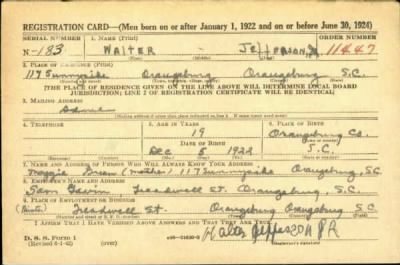 REGISTRATION CARD—(Men born on or after January 1, 1922 and on or before June 30, 1924)
SERIAL NUMBER 1. NAME (Print) ORDER NUMBER
N-183 WALTER JEFFERSON JR 11447
(First) (Middle) (Last)
2. PLACE OF RESIDENCE (Print)
117 Sunnyside Orangeburg Orangeburg S.C.
[THE PLACE OF RESIDENCE GIVEN ON THE LINE ABOVE WILL DETERMINE LOCAL BOARD
JURISDICTION; LINE 2 OF REGISTRATION CERTIFICATE WILL BE IDENTICAL]
3. MAILING ADDRESS
Same
4. TELEPHONE 5. AGE IN YEARS 6. PLACE OF BIRTH
19 Orangeburg Co.
DATE OF BIRTH
Dec 5 1922 S.C.
7. NAME AND ADDRESS OF PERSON WHO WILL ALWAYS KNOW YOUR ADDRESS
Maggie Green (mother) 117 Sunnyside Orangeburg, S.C.
8. EMPLOYER'S NAME AND ADDRESS
Treadwell St. Orangeburg, S.C.
9. PLACE OF EMPLOYMENT OR BUSINESS
Treadwell St. Orangeburg Orangeburg S.C.
I AFFIRM THAT I HAVE VERIFIED ABOVE ANSWERS AND THAT THEY ARE TRUE.
D. S. S. Form 1
(Revised 6-1-42) (over)
Walter Jefferson JR